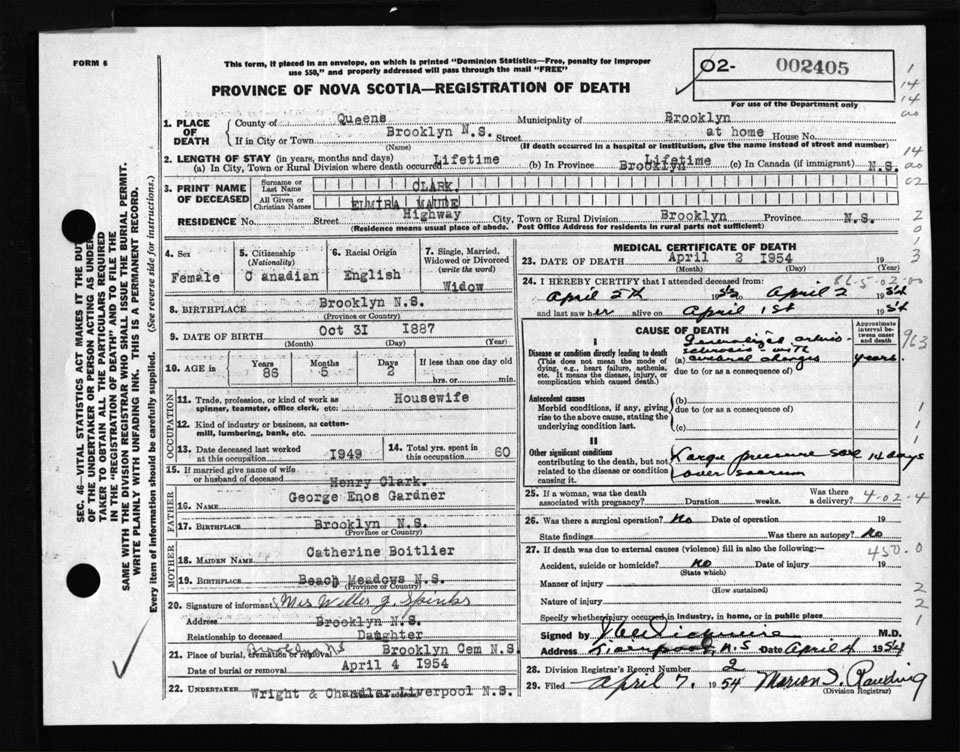 FORM 6
This form, if placed in an envelope, on which is printed "Dominion Statistics—Free, penalty for improper
use $50," and properly addressed will pass through the mail "FREE"
02- 002405
PROVINCE OF NOVA SCOTIA—REGISTRATION OF DEATH
For use of the Department only
1. PLACE OF DEATH
County of Queens Municipality of Brooklyn
If in City or Town Brooklyn N.S. Street at home House No.
(Name) (If death occurred in a hospital or institution, give the name instead of street and number)
2. LENGTH OF STAY (in years, months and days)
(a) In City, Town or Rural Division where death occurred Lifetime (b) In Province Lifetime Brooklyn (c) In Canada (if immigrant) N.S.
3. PRINT NAME OF DECEASED
Surname or Last Name CLARK.
All Given or Christian Names ELMIRA MAUDE
RESIDENCE No. Street Highway City, Town or Rural Division Brooklyn Province N.S.
(Residence means usual place of abode. Post Office Address for residents in rural parts not sufficient)
4. Sex Female
5. Citizenship (Nationality) Canadian
6. Racial Origin English
7. Single, Married, Widowed or Divorced (write the word) Widow
8. BIRTHPLACE Brooklyn N.S.
(Province or Country)
9. DATE OF BIRTH Oct 31 1887
(Month) (Day) (Year)
10. AGE in Years 86 Months 5 Days 2 If less than one day old
hrs. or min.
OCCUPATION
11. Trade, profession, or kind of work as
spinner, teamster, office clerk, etc. Housewife
12. Kind of industry or business, as cotton-
mill, lumbering, bank, etc.
13. Date deceased last worked at this occupation 1949
14. Total yrs. spent in this occupation 60
15. If married give name of wife
or husband of deceased Henry Clark.
FATHER
16. NAME George Enos Gardner
17. BIRTHPLACE Brooklyn N.S.
(Province or Country)
MOTHER
18. MAIDEN NAME Catherine Boitlier
19. BIRTHPLACE Beach Meadows N.S.
(Province or Country)
20. Signature of informant Mrs
Address Brooklyn N.S.
Relationship to deceased Daughter
21. Place of burial, cremation or removal Brooklyn NS Brooklyn Cem N.S.
Date of burial or removal April 4 1954
22. UNDERTAKER Wright & Chandler Liverpool N.S.
MEDICAL CERTIFICATE OF DEATH
23. DATE OF DEATH April 2 1954
(Month) (Day) (Year)
24. I HEREBY CERTIFY that I attended deceased from:
April 5th 1952 to April 2 1954
and last saw her alive on April 1st 1954
CAUSE OF DEATH
Approximate interval between onset and death
I
Disease or condition directly leading to death
(This does not mean the mode of
dying, e.g., heart failure, asthenia,
etc. It means the disease, injury, or
complication which caused death.)
(a) Generalized arterio-
sclerosis with
cerebral changes years.
due to (or as a consequence of)
Antecedent causes
Morbid conditions, if any, giving
rise to the above cause, stating the
underlying condition last.
(b)
due to (or as a consequence of)
(c)
II
Other significant conditions
contributing to the death, but not
related to the disease or condition
causing it.
Large pressure sore 14 days
over sacrum
25. If a woman, was the death
associated with pregnancy? Duration weeks. Was there a delivery? 4-02-4
26. Was there a surgical operation? No Date of operation 19
State findings Was there an autopsy? No
27. If death was due to external causes (violence) fill in also the following:— 450.0
Accident, suicide or homicide? No Date of injury 19
(State which)
Manner of injury
(How sustained)
Nature of injury
Specify whether injury occurred in industry, in home, or in public place
Signed by M.D.
Address Liverpool, N.S Date April 4 1954
28. Division Registrar's Record Number 2
29. Filed April 7. 1954 Marion
(Division Registrar)
SEC. 46—VITAL STATISTICS ACT MAKES IT THE DUTY
OF THE UNDERTAKER OR PERSON ACTING AS UNDER-
TAKER TO OBTAIN ALL THE PARTICULARS REQUIRED
IN THE "REGISTRATION OF DEATH" AND TO FILE THE
SAME WITH THE DIVISION REGISTRAR WHO SHALL ISSUE THE BURIAL PERMIT.
WRITE PLAINLY WITH UNFADING INK. THIS IS A PERMANENT RECORD.
Every item of information should be carefully supplied. (See reverse side for instructions.)